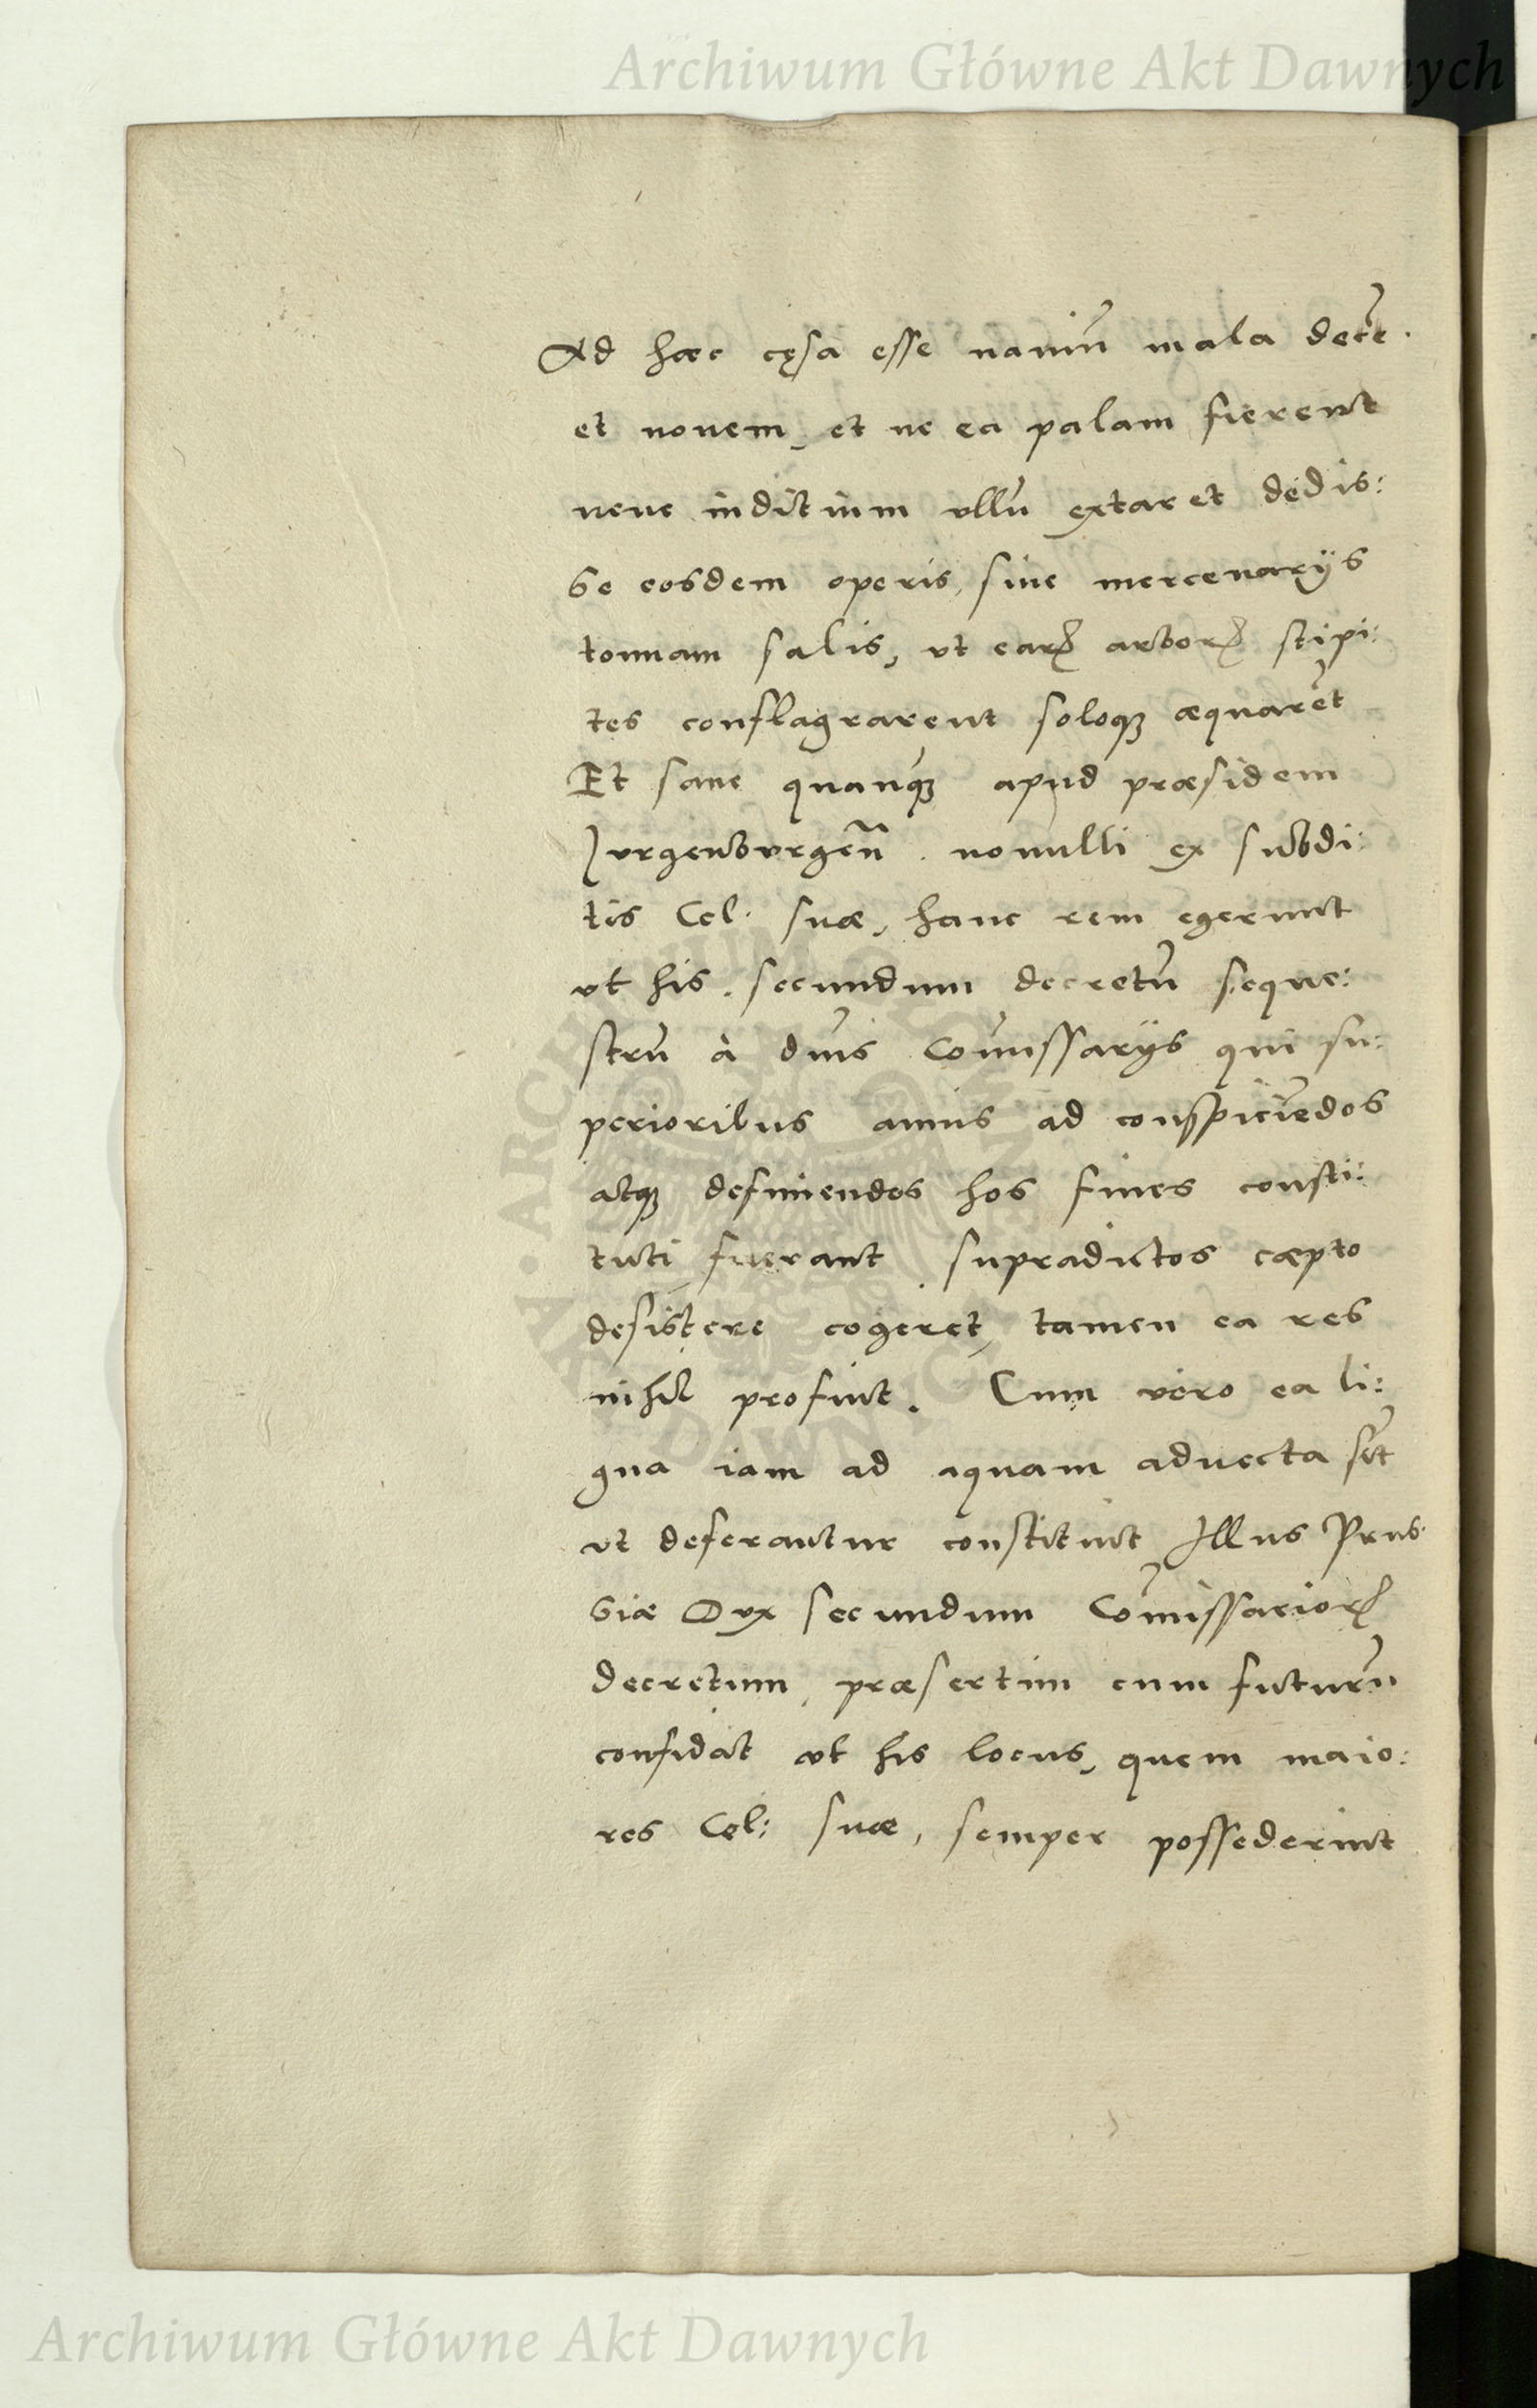 Archiwum Główne Akt Dawnych
Ad hæc cęsa esse nauiū mala decē.
et nouem, et ne ea palam fierent
neue inditium vllū extaret dedis:
se eosdem operis, siue mercenarÿs
tonnam salis, vt earꝝ arborꝝ stipi:
tes conflagrarent soloqꝫ æquarēt
Et sane quanqꝫ apud præsidem
Jurgenburgeñ. nonulli ex subdi:
tis Cel. suæ, hanc rem egerunt
vt his. secundum decretū seque:
strū à dnis Comissarÿs qui su:
perioribus annis ad conspiciēdos
atqꝫ definiendos hos fines consti:
tuti fuerant supradictos cæpto
desistere cogeret, tamen ea res
nihil profuit. Cum vero ea li:
gna iam ad aquam aduecta sīt
vt deferantur constituit Illus Prus.
siæ Dux secundum Comissariorꝝ
decretum, præsertim cum futurū
confidat vt his locus, quem maio:
res Cel: suæ, semper possederint
Archiwum Główne Akt Dawnych